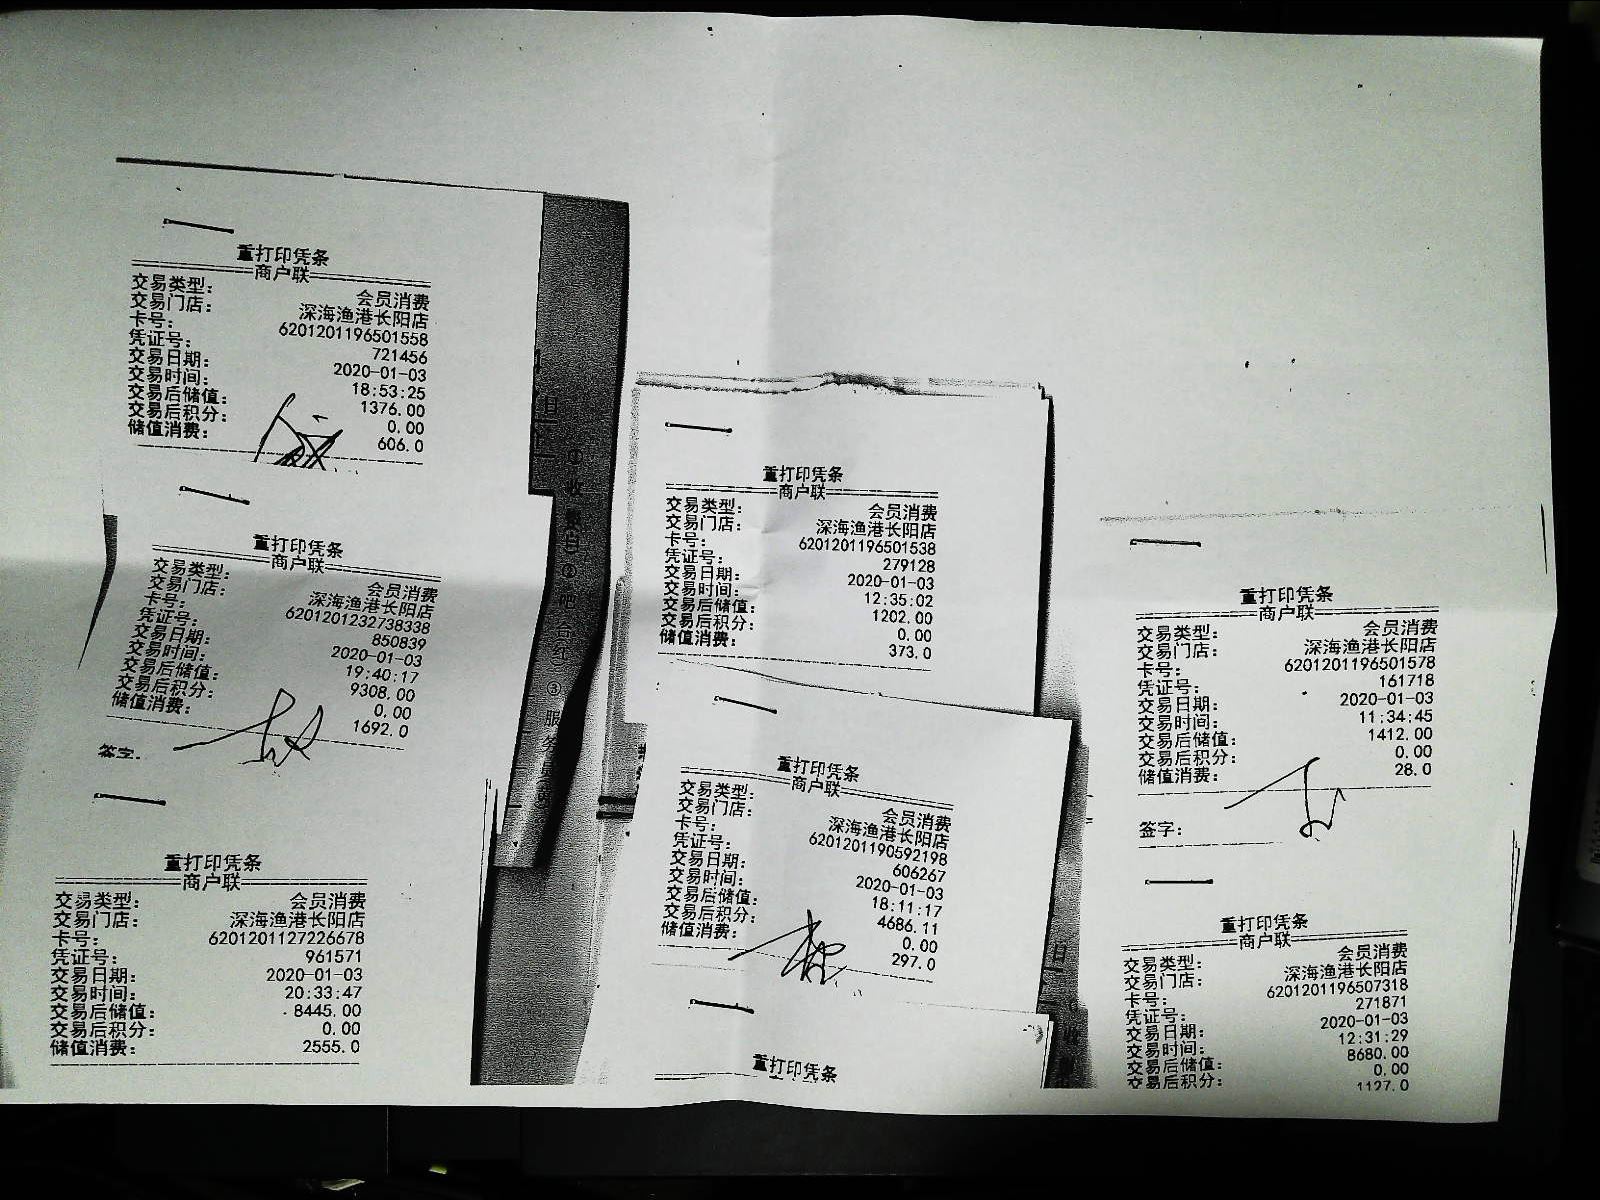 重打印凭条
商户联
交易类型： 会员消费
交易门店： 深海渔港长阳店
卡号： 6201201196501558
凭证号： 721456
交易日期： 2020-01-03
交易时间： 18:53:25
交易后储值： 1376.00
交易后积分： 0.00
储值消费： 606.0
重打印凭条
商户联
交易类型： 会员消费
交易门店： 深海渔港长阳店
卡号： 6201201232738338
凭证号： 850839
交易日期： 2020-01-03
交易时间： 19:40:17
交易后储值： 9308.00
交易后积分： 0.00
储值消费： 1692.0
签字：
重打印凭条
商户联
交易类型： 会员消费
交易门店： 深海渔港长阳店
卡号： 6201201127226678
凭证号： 961571
交易日期： 2020-01-03
交易时间： 20:33:47
交易后储值： 8445.00
交易后积分： 0.00
储值消费： 2555.0
重打印凭条
商户联
交易类型： 会员消费
交易门店： 深海渔港长阳店
卡号： 6201201196501538
凭证号： 279128
交易日期： 2020-01-03
交易时间： 12:35:02
交易后储值： 1202.00
交易后积分： 0.00
储值消费： 373.0
重打印凭条
商户联
交易类型： 会员消费
交易门店： 深海渔港长阳店
卡号： 6201201190592198
凭证号： 606267
交易日期： 2020-01-03
交易时间： 18:11:17
交易后储值： 4686.11
交易后积分： 0.00
储值消费： 297.0
重打印凭条
重打印凭条
商户联
交易类型： 会员消费
交易门店： 深海渔港长阳店
卡号： 6201201196501578
凭证号： 161718
交易日期： 2020-01-03
交易时间： 11:34:45
交易后储值： 1412.00
交易后积分： 0.00
储值消费： 28.0
签字：
重打印凭条
商户联
交易类型： 会员消费
交易门店： 深海渔港长阳店
卡号： 6201201196507318
凭证号： 271871
交易日期： 2020-01-03
交易时间： 12:31:29
交易后储值： 8680.00
交易后积分： 0.00
1127.0